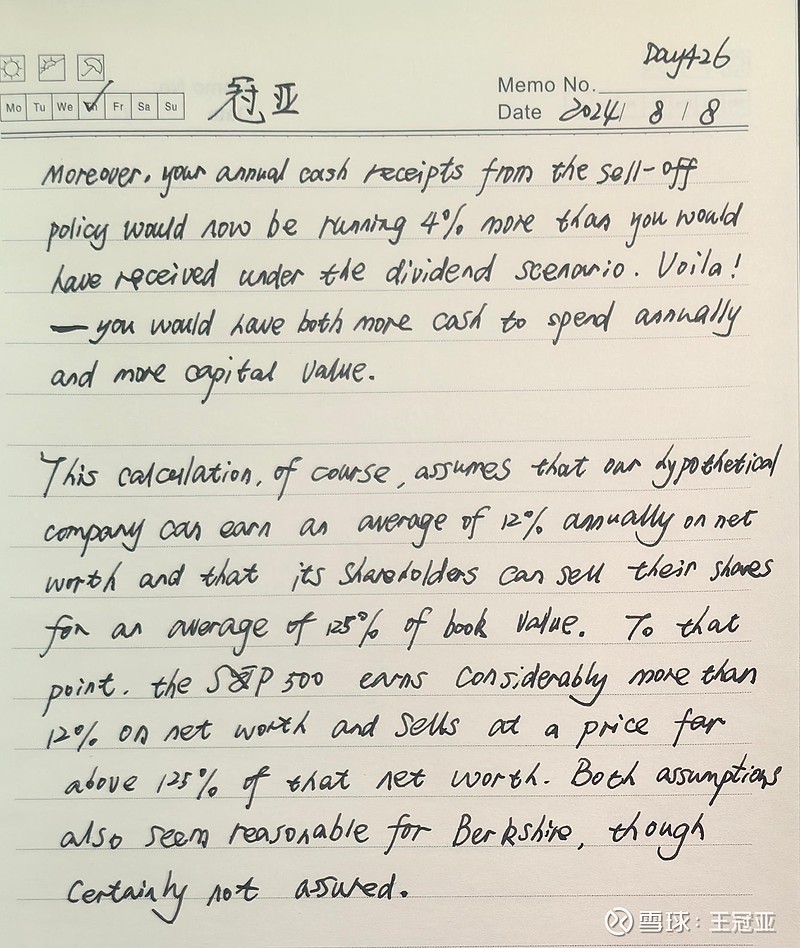 Day426
Mo Tu We Th Fr Sa Su
冠亚
Memo No.
Date 2024/ 8 / 8
Moreover, your annual cash receipts from the sell-off
policy would now be running 4% more than you would
have received under the dividend scenario. Voila!
—you would have both more cash to spend annually
and more capital value.
This calculation, of course, assumes that our hypothetical
company can earn an average of 12% annually on net
worth and that its shareholders can sell their shares
for an average of 125% of book value. To that
point, the S&P 500 earns considerably more than
12% on net worth and sells at a price far
above 125% of that net worth. Both assumptions
also seem reasonable for Berkshire, though
certainly not assured.
雪球:王冠亚